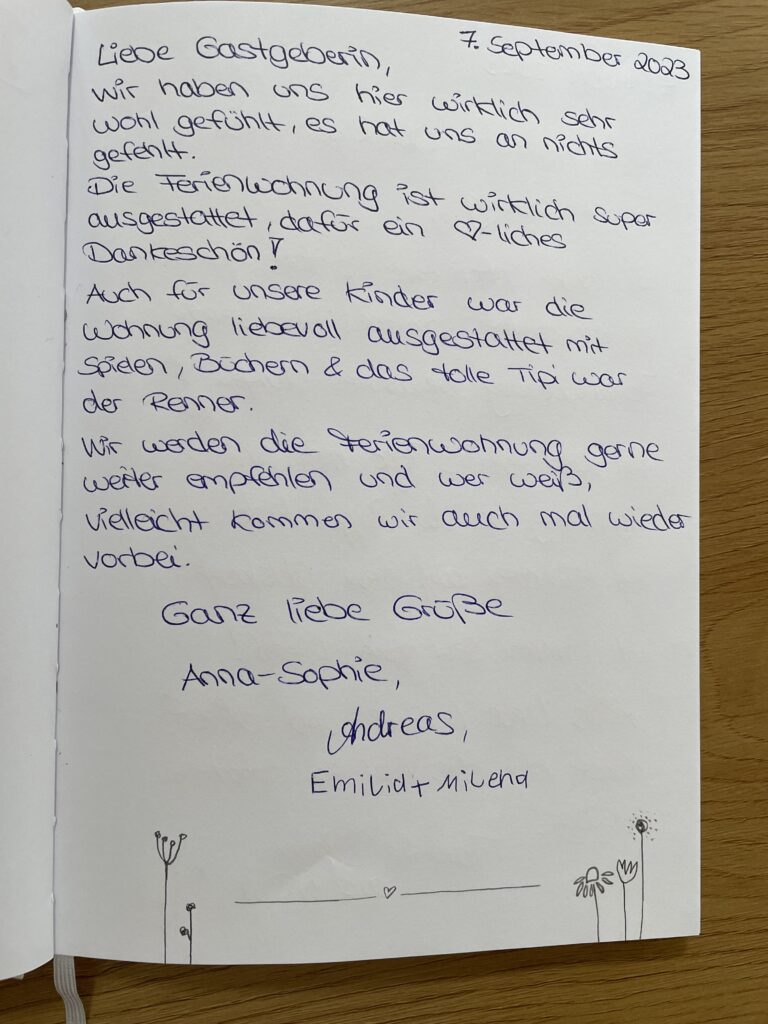 7. September 2023
Liebe Gastgeberin,
wir haben uns hier wirklich sehr
wohl gefühlt, es hat uns an nichts
gefehlt.
Die Ferienwohnung ist wirklich super
ausgestattet, dafür ein ♡-liches
Dankeschön!
Auch für unsere Kinder war die
Wohnung liebevoll ausgestattet mit
Spielen, Büchern & das tolle Tipi war
der Renner.
Wir werden die Ferienwohnung gerne
weiter empfehlen und wer weiß,
vielleicht kommen wir auch mal wieder
vorbei.
Ganz liebe Grüße
Anna-Sophie,
Andreas,
Emilia + Milena